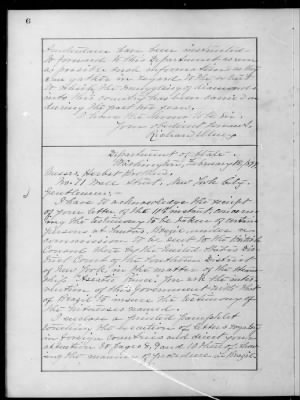 6
Amsterdam has been instructed
to forward to this Department as soon
as possible such information as he
can gather in regard to the extent
to which the smuggling of diamonds
into this country has been carried on
during the past two years.
I have the honor to be, Sir,
Your obedient servant,
Richard Olney
Department of State,
Washington, February 18, 189
Messrs. Herbst Brothers,
No. 71 Wall Street, New York City.
Gentlemen:
I have to acknowledge the receipt
of your letter of the 11th instant, concern-
ing the testimony to be taken of certain
persons at Santos, Brazil, under a
commission to be sent to the British
Consul there by the United States Dis-
trict Court of the Southern District
of New York, in the matter of the steam
ship You ask the inter-
vention of this Government with that
of Brazil to insure the testimony of
the witnesses named.
I enclose a printed pamphlet
touching the execution of letters rogatory
in foreign countries and direct your
attention to pages 8, 9 and 10 thereof show-
ing the manner of procedure in Brazil.